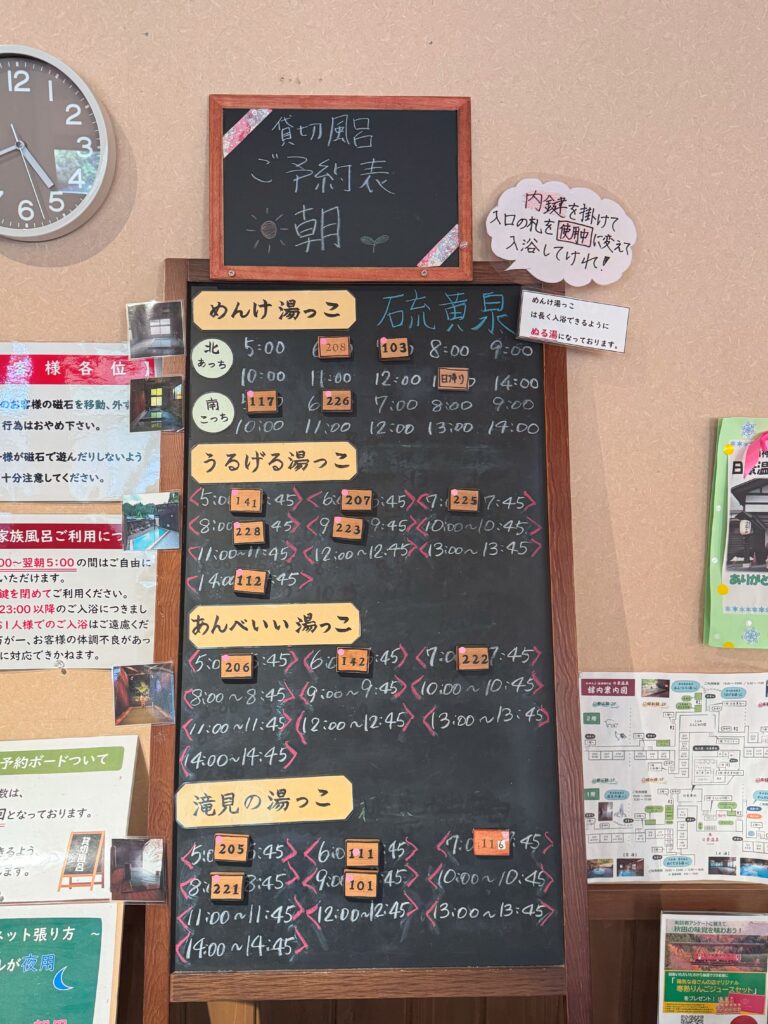 12
1
2
3
4
5
6
貸切風呂
ご予約表
朝
内鍵を掛けて
入口の札を使用中に変えて
入浴してけれ!
めんけ湯っこ
硫黄泉
めんけ湯っこ
は長く入浴できるように
ぬる湯になっております。
北
あっち
5:00 208 103 8:00 9:00
10:00 11:00 12:00 日帰り 14:00
南
こっち
117 226 7:00 8:00 9:00
10:00 11:00 12:00 13:00 14:00
うるげる湯っこ
5:0 141 :45 6: 207 :45 7: 225 7:45
8:00 228 :45 9 223 9:45 10:00~10:45
11:00~11:45 12:00~12:45 13:00~13:45
14:0 112 :45
あんべいい湯っこ
5:0 206 :45 6: 142 :45 7:0 222 7:45
8:00~8:45 9:00~9:45 10:00~10:45
11:00~11:45 12:00~12:45 13:00~13:45
14:00~14:45
滝見の湯っこ
5:0 205 :45 6: 111 :45 7:0 116 :45
8: 221 :45 9:0 101 :45 10:00~10:45
11:00~11:45 12:00~12:45 13:00~13:45
14:00~14:45
客様各位
のお客様の磁石を移動、外す
行為はおやめ下さい。
様が磁石で遊んだりしないよう
十分注意してください。
家族風呂ご利用につ
00~翌朝5:00の間はご自由に
いただけます。
鍵を閉めてご利用ください。
23:00以降のご入浴につきまし
お1人様でのご入浴はご遠慮くだ
万が一、お客様の体調不良があっ
に対応できかねます。
予約ボードついて
数は、
回となっております。
きるよう、
します。
貸切風呂
ネット張り方 ~
ルが夜用
日景温
ありがと
館内案内図
秋田の味覚を味わおう!
「陽気な母さんの店オリジナル
寒熟りんごジュースセット」
をプレゼント!